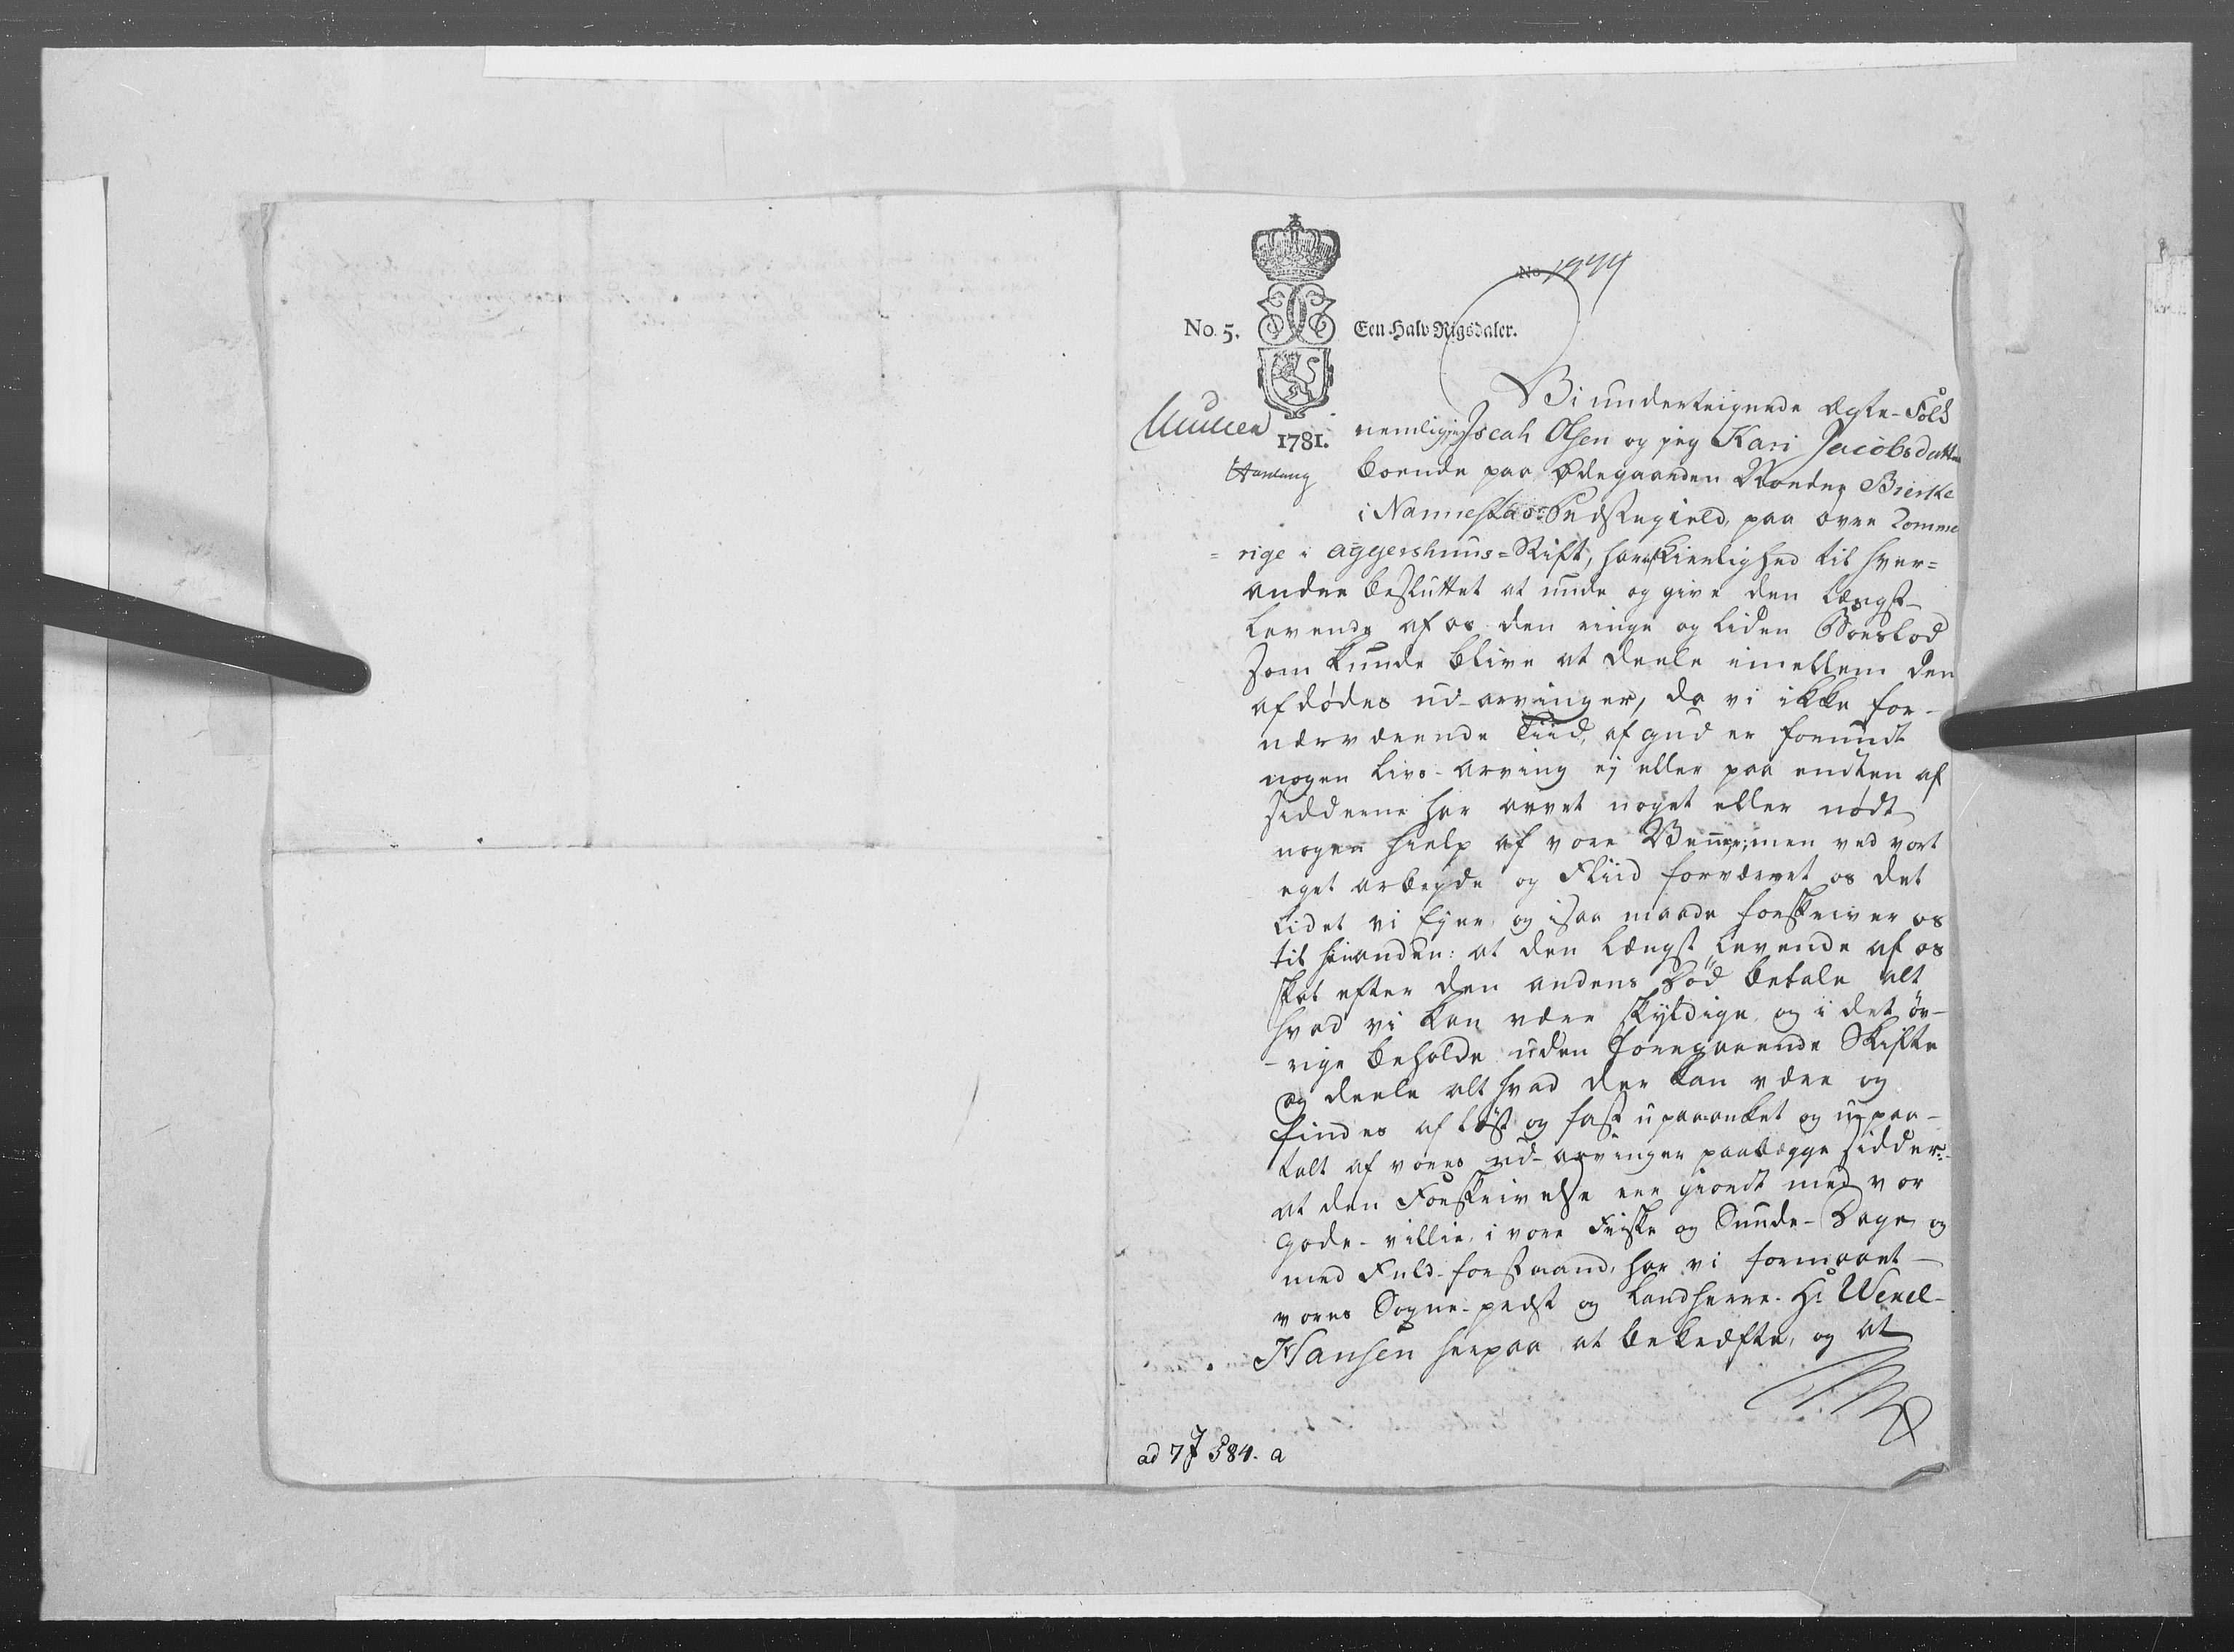 No 1944
No. 5.
Een Halv Rigsdaler.
1781.
Vi underteignede Ægte-Folk
nemlig jeg Iscah Olsen og jeg Kari Jacobsdatter
boende paa Ødegaarden Nordre Bierke
i Nannestad Prdstegield, paa over Romme
= rige i Aggershuus-Stift, har af Kierlighed til hver=
andre besluttet at unde og give den Længst-
Levende af os den ringe og liden Boeslod
som kunde blive at deele imellem den
afdødes ud-arvinger, da vi ikke for-
nærværende Tiid, af gud er forundt
nogen Livs-Arving ej eller paa endten af
Sidderne har arvet noget eller nødt
nogen hielp af vore Venner; men ved vort
eget arbeyde og Fliid forværvet os det
Lidet vi Eyer, og isaa maade forskriver os
til hinanden: at den Længst Levende af os
skal efter den andens Død betale alt
hvad vi kan være skyldige, og i det øv-
- rige beholde uden foregaaende Skifte
og deele alt hvad der kan være og
findes af løst og fast upaaanket og upaa-
talt af vores ud-arvinger paa begge Sidder:
at den Forskrivelse er giordt med vor
gode-villie, i vore Friske og Sunde-Dage og
med Fuld-forstaand, har vi formaaet
vores Sogne-prdst og Landherre Hr Wexel-
Hansen herpaa at bekræfte, og at
ad 7 J 584. a